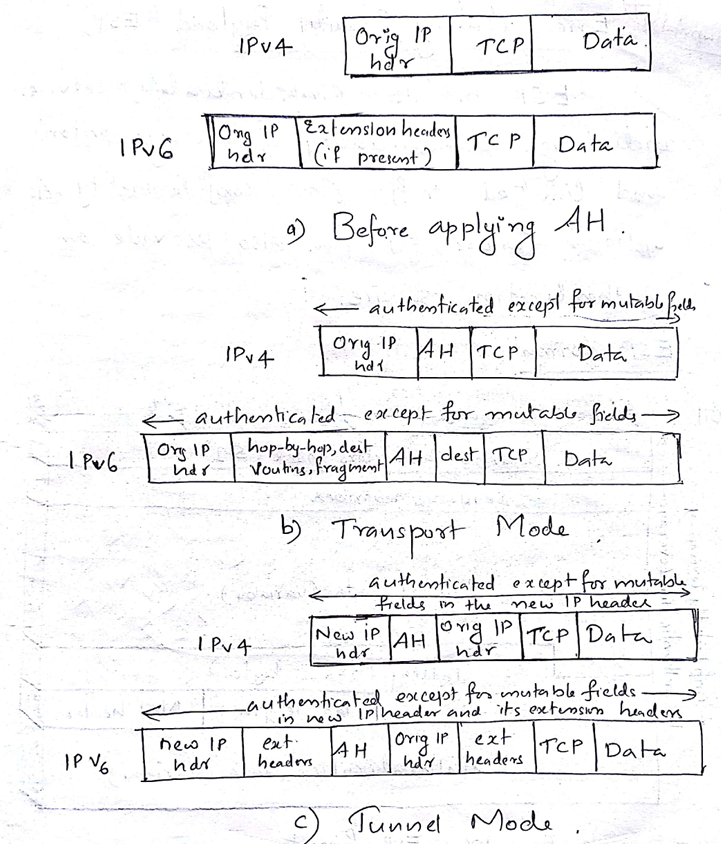 IPv4 Orig IP hdr TCP Data.
IPv6 Orig IP hdr Extension headers (if present) TCP Data
a) Before applying AH.
authenticated except for mutable fields
IPv4 Orig IP hdr AH TCP Data
authenticated except for mutable fields
IPv6 Orig IP hdr hop-by-hop, dest routing, fragment AH dest TCP Data
b) Transport Mode.
authenticated except for mutable
fields in the new IP header
IPv4 New IP hdr AH Orig IP hdr TCP Data
authenticated except for mutable fields
in new IP header and its extension headers
IPv6 new IP hdr ext. headers AH Orig IP hdr ext headers TCP Data
c) Tunnel Mode.